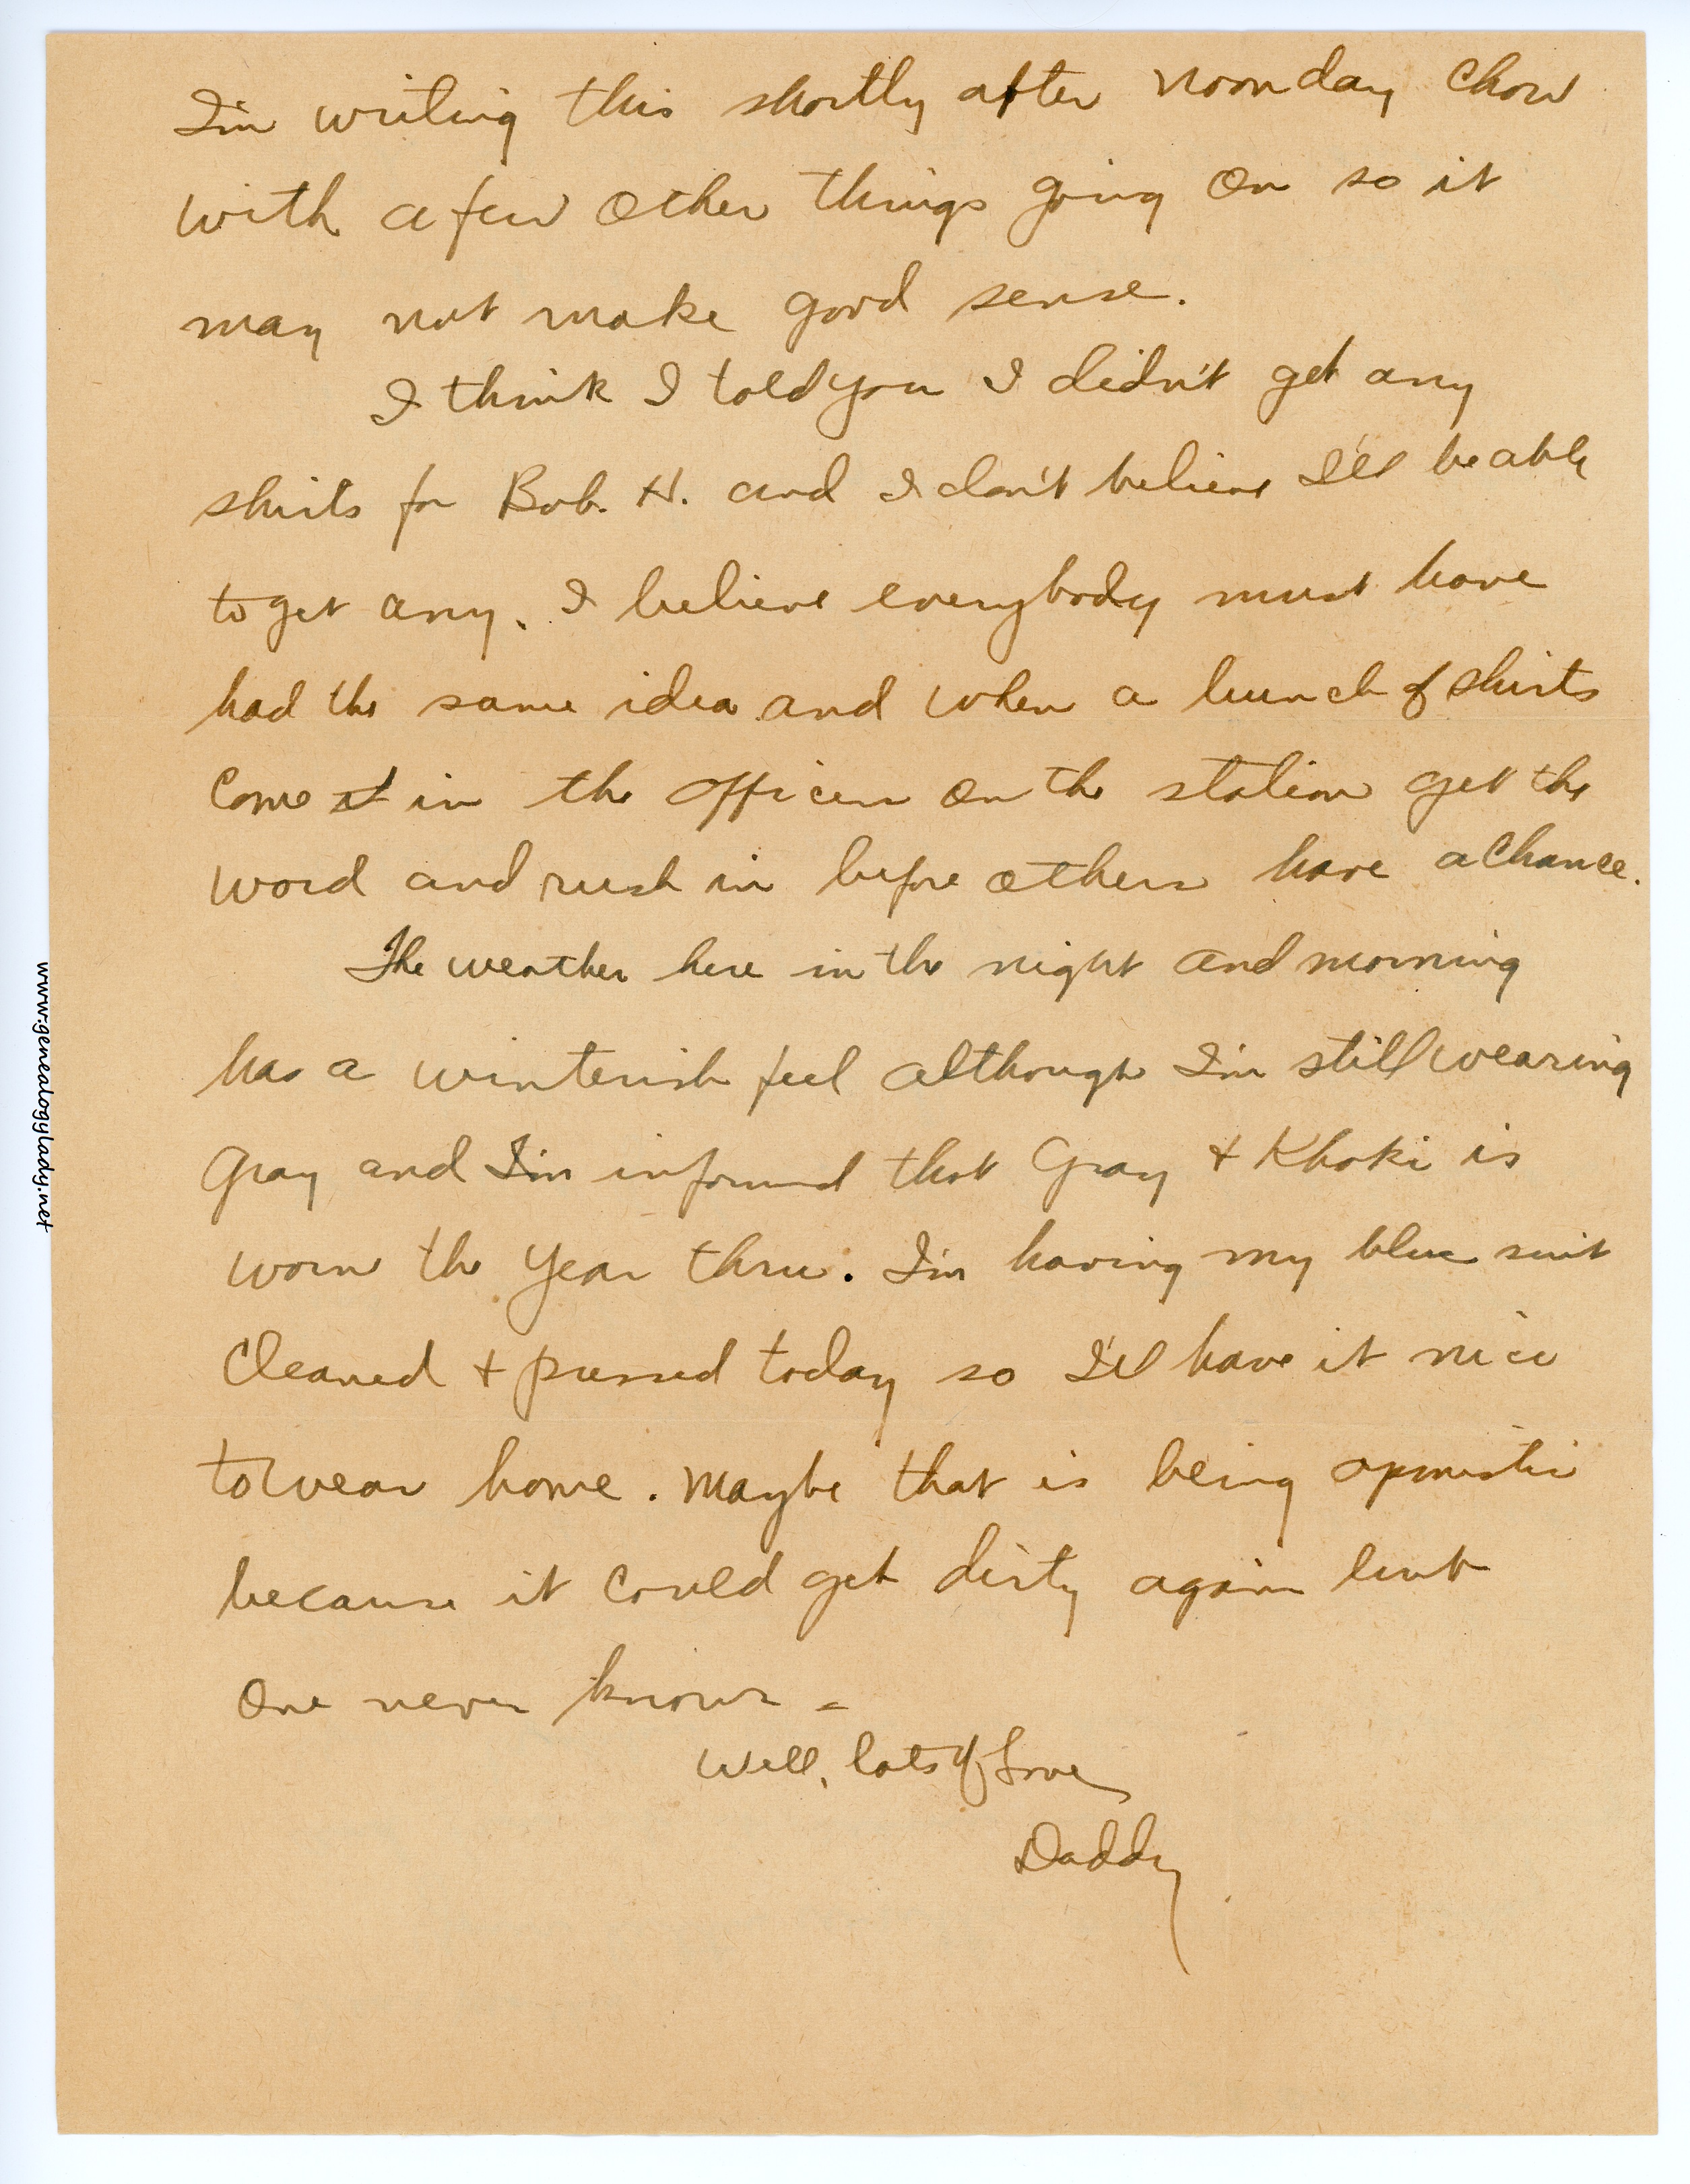 I'm writing this shortly after noonday chow
with a few other things going on so it
may not make good sense.
I think I told you I didn't get any
shirts for Bob. H. and I don't believe I'll be able
to get any. I believe everybody must have
had the same idea and when a bunch of shirts
come in the officers on the station get the
word and rush in before others have a chance.
The weather here in the night and morning
has a winterish feel although I'm still wearing
gray and I'm informed that Gray + Khaki is
worn the year thru. I'm having my blue suit
cleaned + pressed today so I'll have it nice
to wear home. Maybe that is being opmistic
because it could get dirty again but
one never knows -
Well, lots of Love
Daddy
www.genealogylady.net